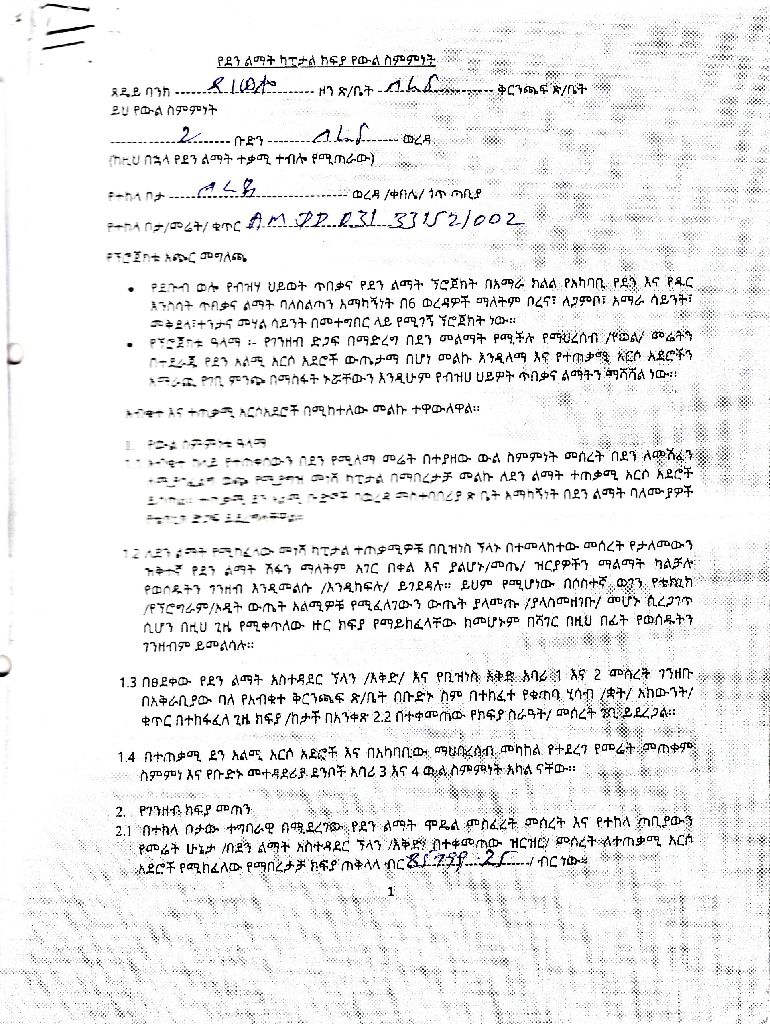 የደን ልማት ካፒታል ክፍያ የውል ስምምነት
ጸደይ ባንክ ዞን ጽ/ቤት ቅርንጫፍ ጽ/ቤት
ይህ የውል ስምምነት
2 ቡድን ወረዳ
(ከዚህ በኋላ የደን ልማት ተቃሚ ተብሎ የሚጠራው)
የተከላ ቦታ ወረዳ /ቀበሌ/ ጎጥ ጣቢያ
የተከላ ቦታ/መሬት/ ቁጥር AM DD 031 33152/002
የፕሮጀክቱ አጭር መግለጫ
• የደቡብ ወሎ የብዝሃ ህይወት ጥበቃና የደን ልማት ፕሮጀክት በአማራ ክልል የአካባቢ የደን እና የዱር
እንስሳት ጥበቃና ልማት ባለስልጣን አማካኝነት በ6 ወረዳዎች ማለትም ቦረና፣ ለጋምቦ፣ አማራ ሳይንት፣
መቅደላ፣ተንታና መሃል ሳይንት በመተግበር ላይ የሚገኝ ፕሮጀክት ነው።
• የፕሮጀክቱ ዓላማ ፡- የገንዘብ ድጋፍ በማድረግ በደን መልማት የሚችሉ የማህረሰብ /የወል/ መሬትን
በተደራጁ የደን አልሚ አርሶ አደሮች ውጤታማ በሆነ መልኩ እንዲለማ እና የተጠቃሚ አርሶ አደሮችን
አማራጪ የገቢ ምንጭ በማስፋት ኑሯቸውን እንዲሁም የብዝሀ ህይዎት ጥበቃና ልማትን ማሻሻል ነው።
አብቁተ እና ተጠቃሚ አርሶአደሮች በሚከተለው መልኩ ተዋውለዋል።
1. የውል ስምምነቱ ዓላማ
1.1 አብቁተ ከላይ የተጠቀሰውን በደን የሚለማ መሬት በተያዘው ውል ስምምነት መሰረት በደን ለመሸፈን
መነሻ ካፒታል በማበረታቻ መልኩ ለደን ልማት ተጠቃሚ አርሶ አደሮች
ጽ ቤት አማካኝነት በደን ልማት ባለሙያዎች
ድጋፍ
1.2 ለደን ልማት የሚከፈለው መነሻ ካፒታል ተጠቃሚዎቹ በቢዝነስ ፕላኑ በተመላከተው መሰረት የታለመውን
ዝቅተኛ የደን ልማት ሽፋን ማለትም አገር በቀል እና ያልሆኑ/መጤ/ ዝርያዎችን ማልማት ካልቻሉ
የወሰዱትን ገንዘብ እንዲመልሱ /እንዲከፍሉ/ ይገደዳሉ። ይህም የሚሆነው በሶስተኛ ወገን የቴክኒክ
/የፕሮግራም/ኦዲት ውጤት አልሚዎቹ የሚፈለገውን ውጤት ያላመጡ /ያላስመዘገቡ/ መሆኑ ሲረጋገጥ
ሲሆን በዚህ ጊዜ የሚቀጥለው ዙር ክፍያ የማይከፈላቸው ከመሆኑም በሻገር በዚህ በፊት የወሰዱትን
ገንዘብም ይመልሳሉ።
1.3 በፀደቀው የደን ልማት አስተዳደር ፕላን /እቅድ/ እና የቢዝነስ እቅድ አባሪ 1 እና 2 መሰረት ገንዘቡ
በአቅራቢያው ባለ የአብቁተ ቅርንጫፍ ጽ/ቤት በቡድኑ ስም በተከፈተ የቁጠባ ሂሳብ /ቋት/ አከውንት/
ቁጥር በተከፋፈለ ጊዜ ክፍያ /ከታች በአንቀጽ 2.2 በተቀመጠው የክፍያ ስራዓት/ መሰረት ገቢ ይደረጋል።
1.4 በተጠቃሚ ደን አልሚ አርሶ አደሮች እና በአካባቢው ማህበረሰብ መካከል የተደረገ የመሬት መጠቀም
ስምምነ እና የቡድኑ መተዳደሪያ ደንቦች አባሪ 3 እና 4 ውል ስምምነት አካል ናቸው።
2. የገንዘብ ክፍያ መጠን
2.1 በተከላ ቦታው ተግባራዊ በሚደረገው የደን ልማት ሞዴል ምስፈረት መሰረት እና የተከላ ጣቢያውን
የመሬት ሁኔታ /በደን ልማት አስተዳደር ፕላን /እቅድ/ በተቀመጠው ዝርዝር/ ምሰረት ለተጠቃሚ አርሶ
አደሮች የሚከፈለው የማበረታቻ ክፍያ ጠቅላላ ብር / ብር ነው።
1